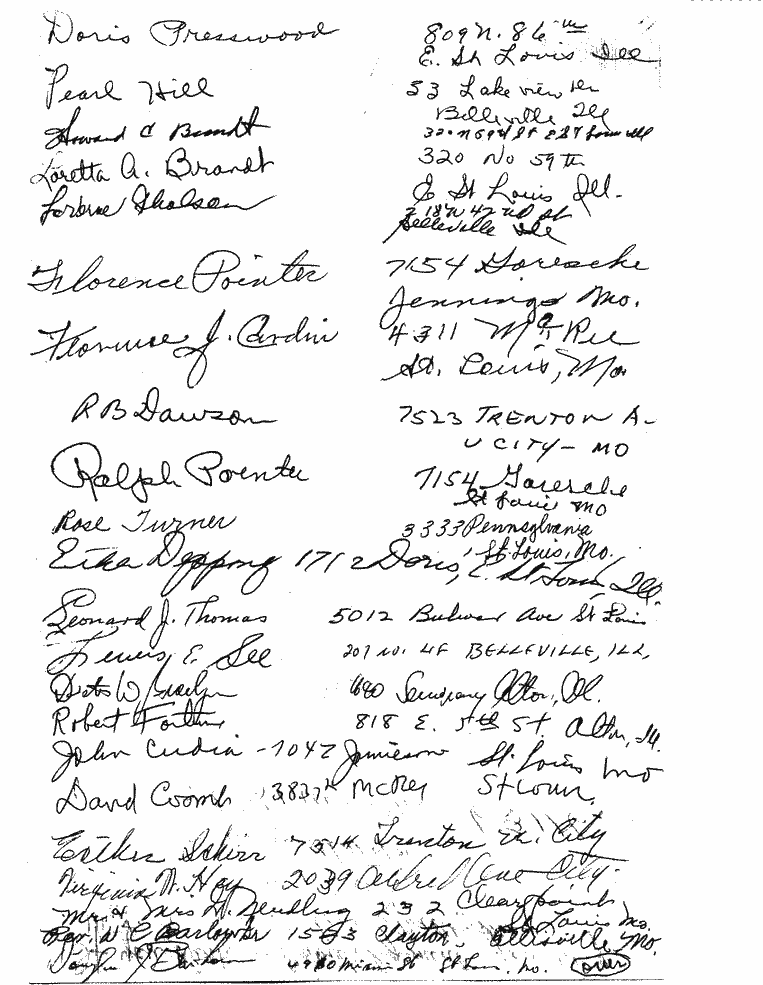 Doris Presswood 809 N. 86th
E. St Louis Ill
Pearl Hill 53 Lake view
Belleville Ill
Howard C Brandt 320 N 59th St E St Louis Ill
Loretta A. Brandt 320 No 59th
E St Louis Ill.
Gholson 218 N 42nd St
Belleville Ill
Florence Pointer 7154 Goresche
Jennings Mo.
Florence J. Cardin 4311 McRee
St. Louis, Mo.
R B Dawson 7523 TRENTON A-
U CITY - MO
Ralph Pointer 7154 Goresche
St Louis MO
Rose Turner 3333 Pennsylvania
St. Louis, Mo.
Erika Depping 1712 Doris, E. St Louis, Ill.
Leonard J. Thomas 5012 Ave St Louis
E. See 207 NO. 4F BELLEVILLE, ILL,
W 680 Seminary Alton, Ill.
Robert 818 E. 5th St. Alton, Ill.
John Cudia - 7042 Jamieson St. Louis Mo
David Coomb 3837A McRee St Louis,
Esther Schirr 7514 Trenton U. City
Virginia N. Hay 2039 Ave City.
Mr. & Mrs 232 Clearpoint
St Louis Mo.
Rev. W C 1563 Clayton, Ellisville, Mo.
J. 4980 Miami St St Louis, Mo. over